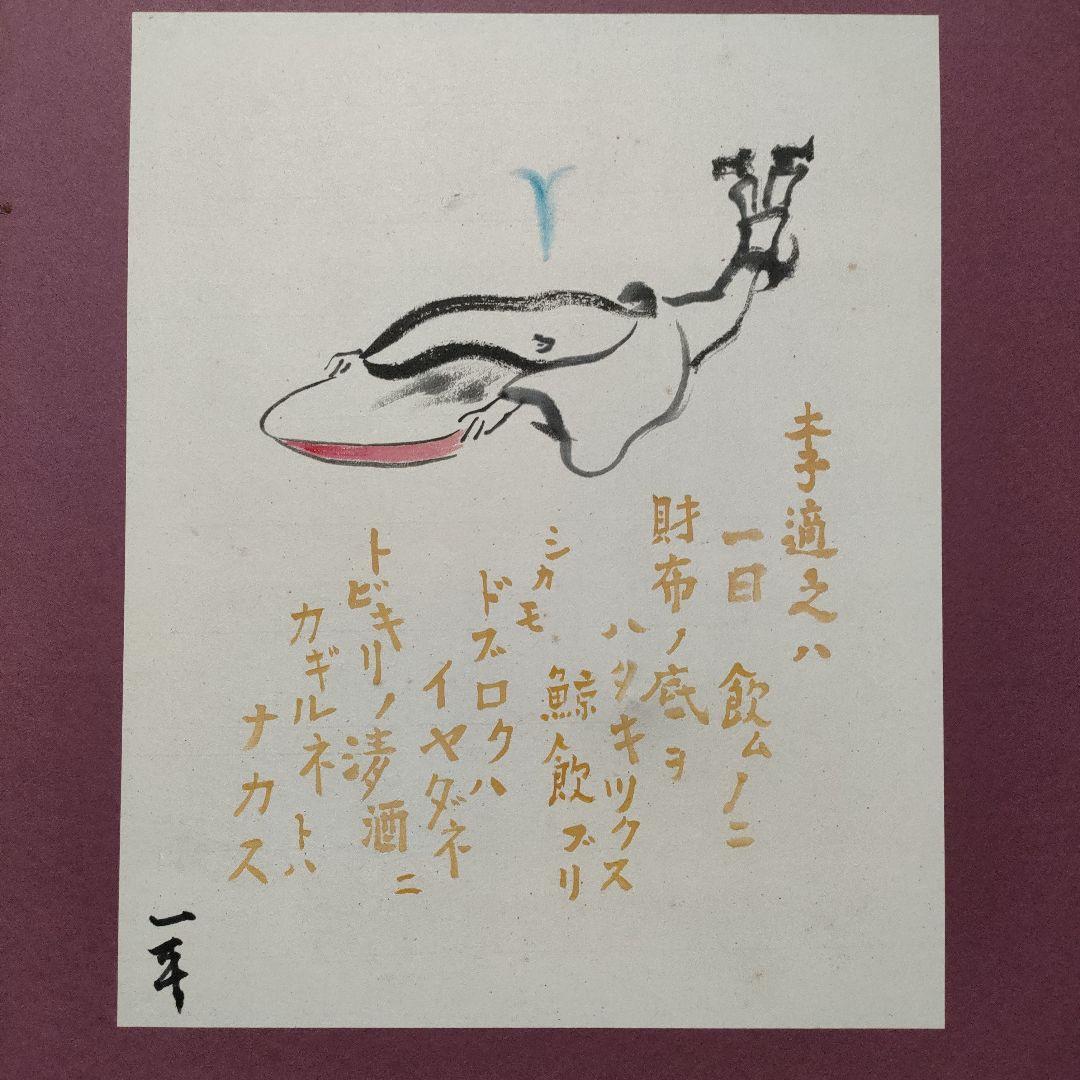 李適之ハ
一日 飲ムノニ
財布ノ底ヲ
ハタキツクス
シカモ 鯨飲ブリ
ドブロクハ
イヤダネ
トビキリノ清酒ニ
カギルネ トハ
ナカス